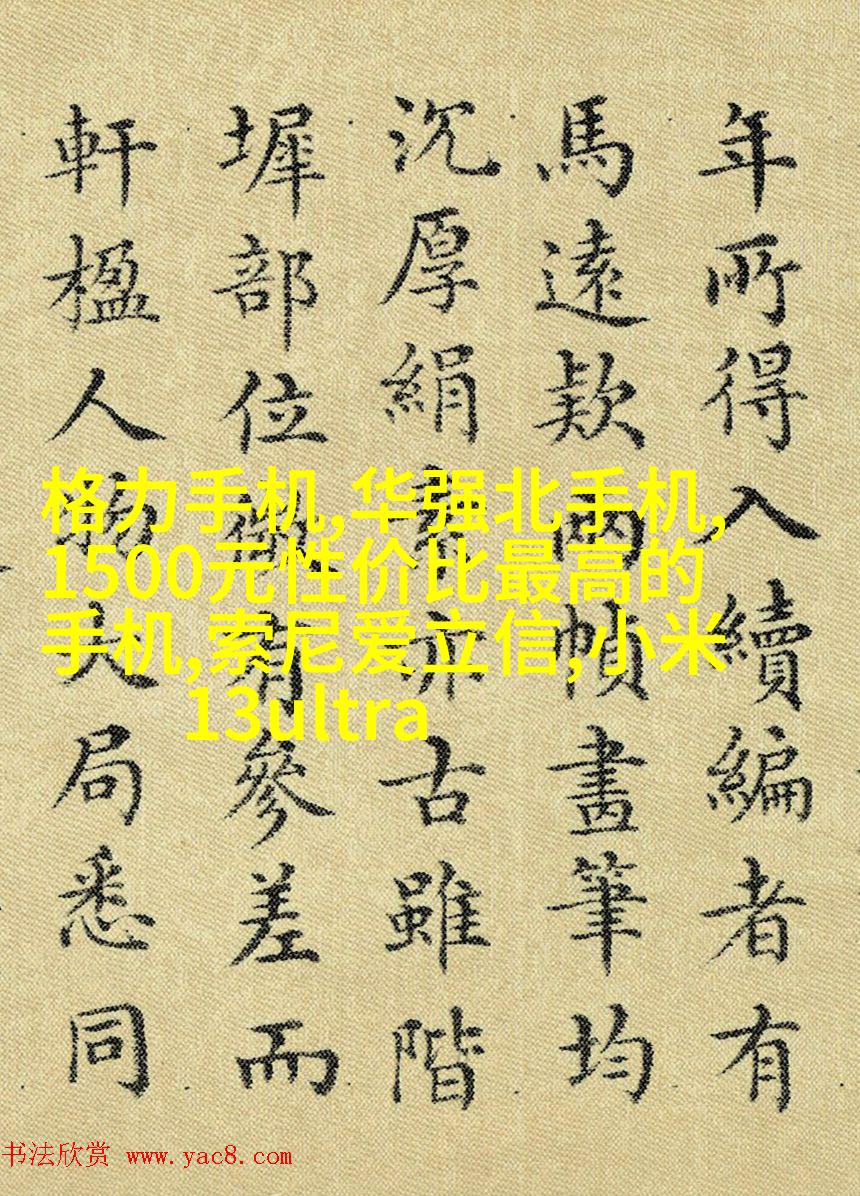 年所得入續編者有
馬遠款兩幀畫筆均
沉厚絹素亦古雖階
墀部位微有參差而
軒楹人物大局悉同
格力手机,华强北手机,
1500元性价比最高的
手机,索尼爱立信,小米
13ultra
书法欣赏 www.yac8.com